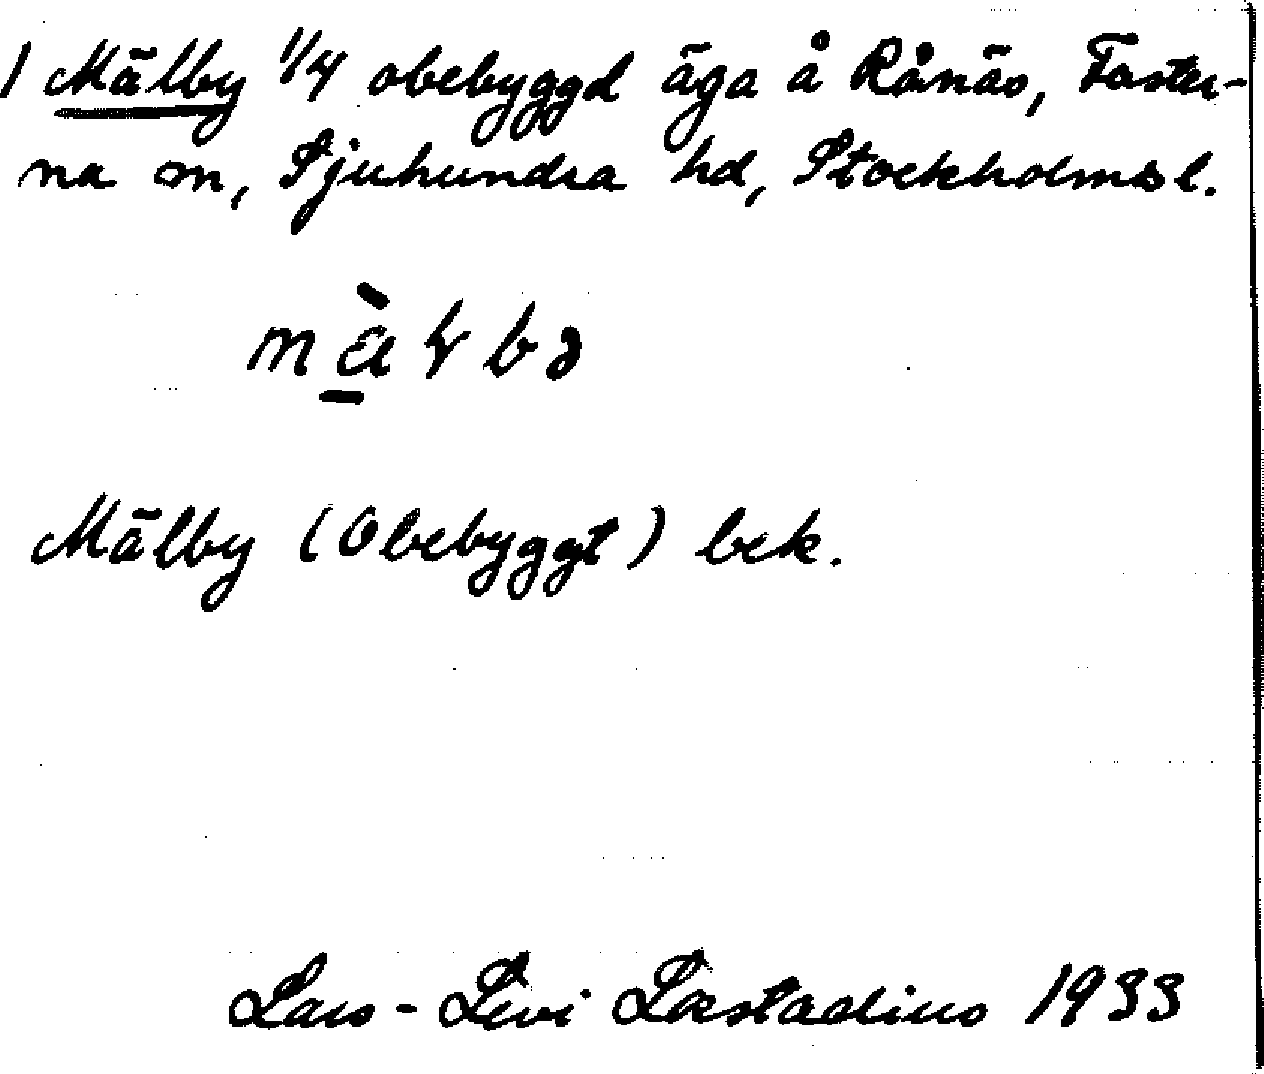 1 Mälby 1/4 obebyggd äga å Rånäs, Faster-
na sn, Sjuhundra hd, Stockholms l.
Mälby (Obebyggt) bek.
Lars-Levi Læstadius 1933